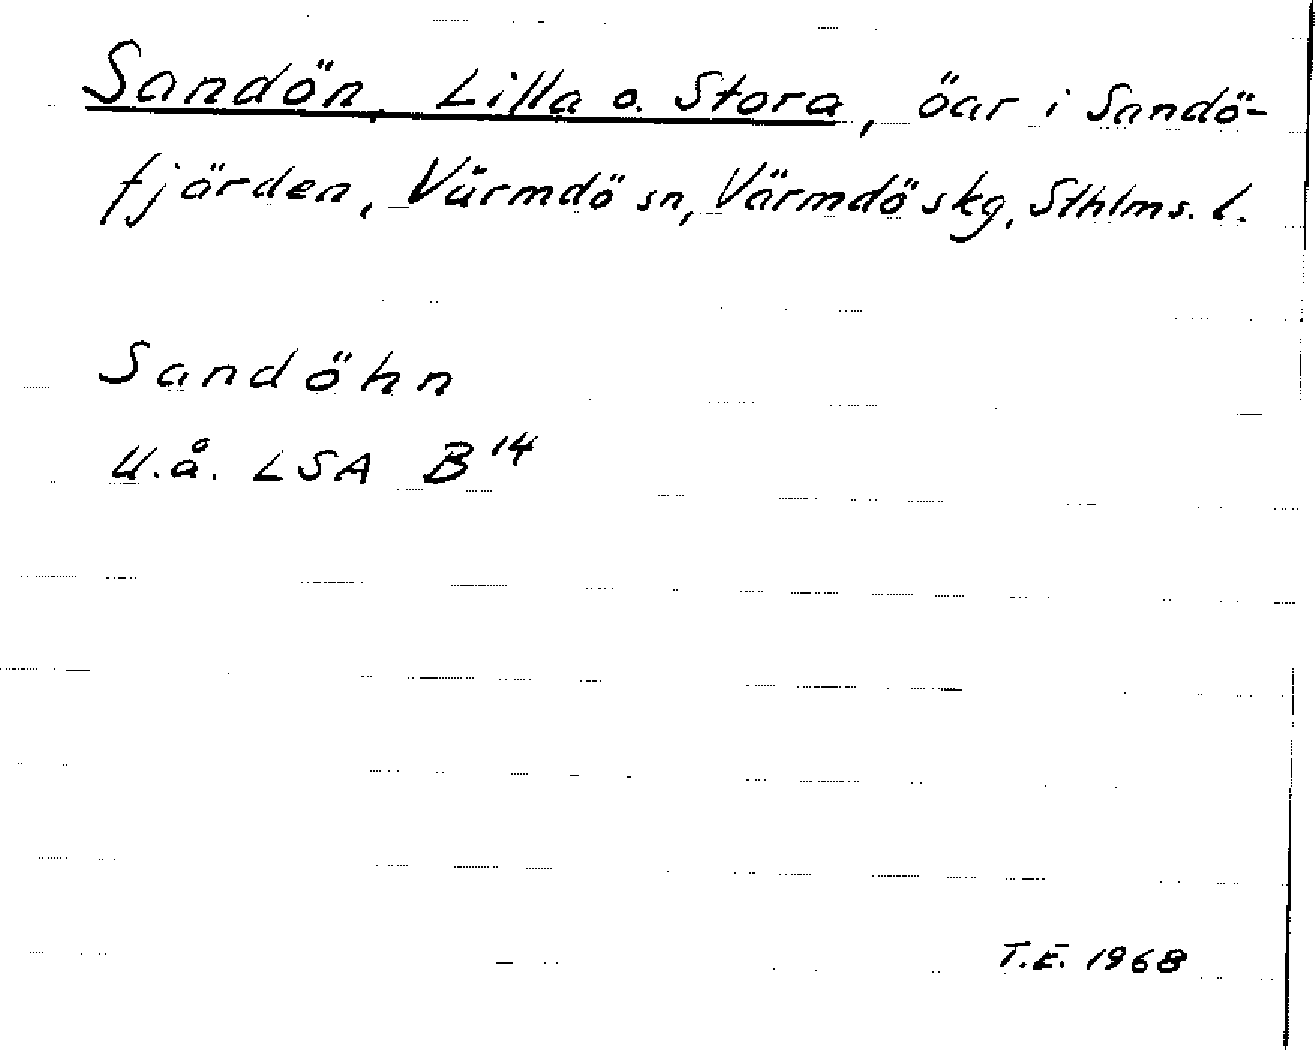 Sandön, Lilla o. Stora, öar i Sandö-
fjärden, Värmdö sn, Värmdö skg, Sthlms. l.
Sandöhn
U.å. LSA B 14
T.E. 1968